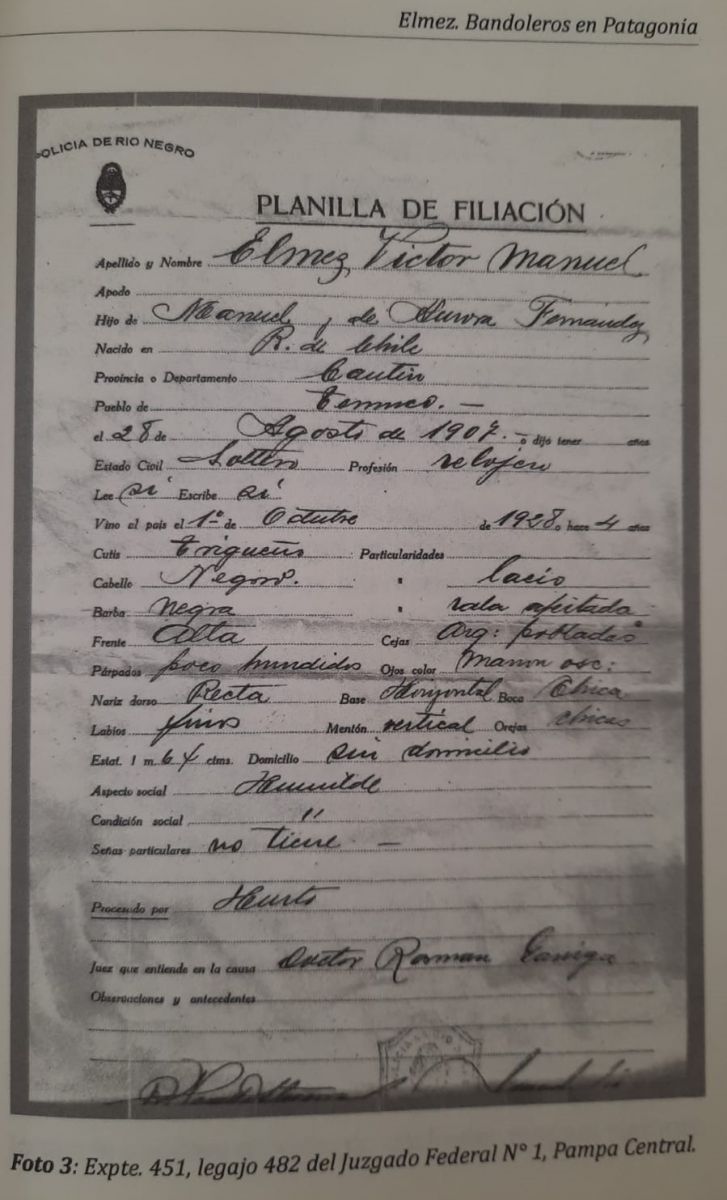 Elmez. Bandoleros en Patagonia
POLICIA DE RIO NEGRO
PLANILLA DE FILIACIÓN
Apellido y Nombre Elmez, Victor Manuel
Apodo
Hijo de Manuel y de Aurora Fernandez
Nacido en R. de Chile
Provincia o Departamento Cautin
Pueblo de Temuco. —
el 28 de Agosto de 1907. – o dijo tener años
Estado Civil Soltero Profesión relojero
Lee si Escribe si
Vino al país el 1º de Octubre de 1928 o hace 4 años
Cutis Trigueño Particularidades
Cabello Negro. " lacio
Barba negra " rala afeitada
Frente Alta Cejas Arq: pobladas
Párpados poco hundidos Ojos color Marron osc:
Nariz dorso Recta Base Horizontal Boca Chica
Labios finos Mentón vertical Orejas chicas
Estat. 1 m. 64 ctms. Domicilio sin domicilio
Aspecto social Humilde
Condición social "
Señas particulares no tiene —
Procesado por Hurto
Juez que entiende en la causa Doctor Roman
Observaciones y antecedentes
Foto 3: Expte. 451, legajo 482 del Juzgado Federal N° 1, Pampa Central.